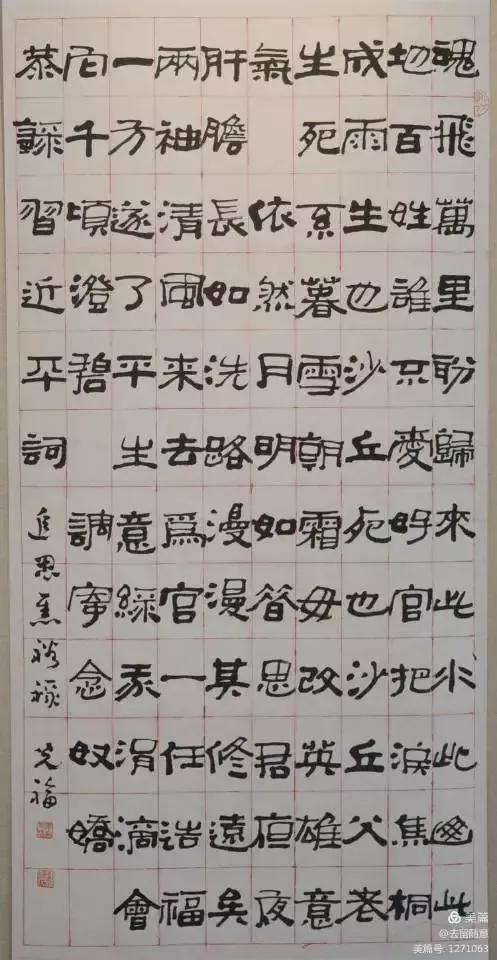 魂飛萬里盼歸來此水此山此
地百姓誰不愛好官把淚焦桐
成雨生也沙丘死也沙丘父老
生死系暮雪朝霜毋改英雄意
氣 依然月明如昔思君夜夜
肝膽長如洗路漫漫其修遠矣
兩袖清風來去爲官一任造福
一方遂了平生意綠我涓滴會
它千頃澄碧 調寄念奴嬌
恭錄習近平詞 追思焦裕祿 光福
美篇
@去留隨意
美篇号: 1271063